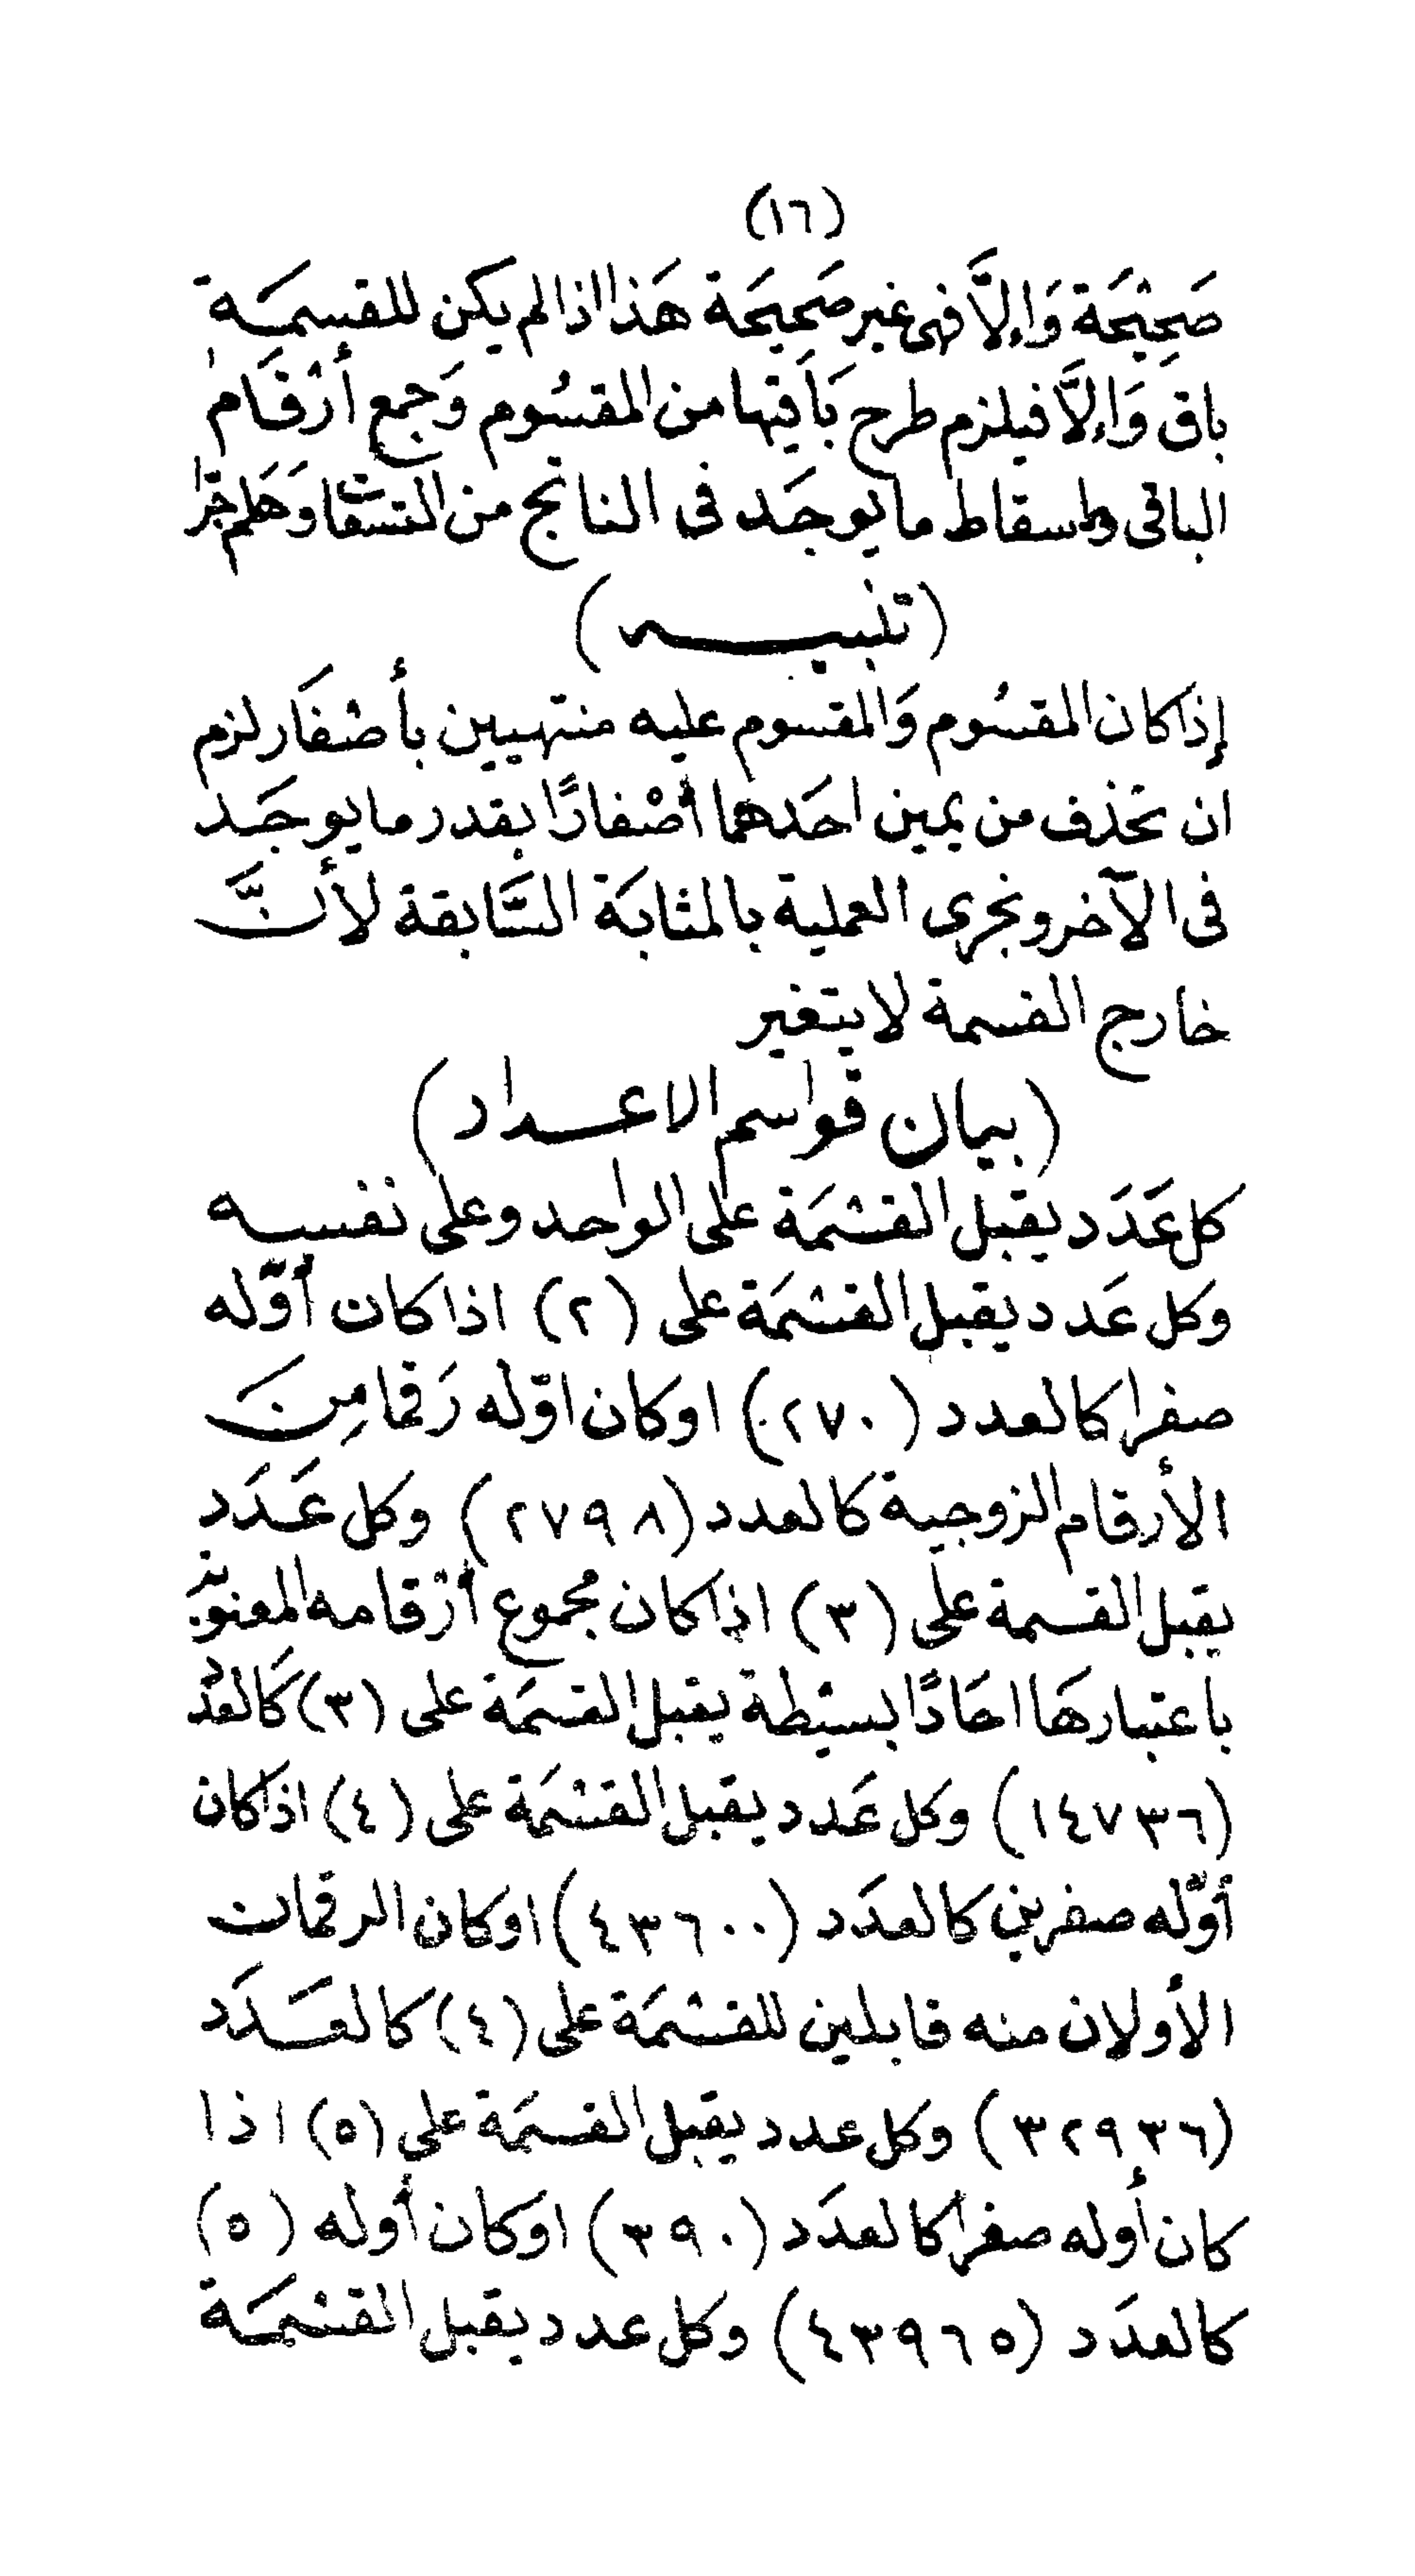 (١٦)
صَحِيْحَة وَاِلاَّ فهى غير صَحِيحَة هَذا اذا لم يكن للقسمَة
باق وَاِلاَّ فيلزم طرح بَاقيَها من المقسُوم وَجمع أرْقَام
الباقى واسقاط ما يوجَد فى الناتج من التسعات وَهَلم جَرّا
(تنبيه)
إذا كان المقسُوم وَالمقسوم عليه منتهيين بأصْفَار لزم
ان تحذف من يمين احَدهما أصْفارًا بقدر ما يوجَد
فى الآخر ونجرى العملية بالمثابَة السَّابقة لأنَّ
خارج القسمة لا يتغير
(بيان قواسم الاعداد)
كل عَدَد يقبل القسْمَة على الواحد وعلى نفسه
وكل عَدد يقبل القسْمَة على (٢) اذا كان أوّله
صفرا كالعدد (٢٧٠) او كان اوّله رَقما مِنَ
الأرقام الزوجية كالعدد (٢٧٩٨) وكل عَدَد
يقبل القسمة على (٣) اذا كان مجُموع أرْقامه المعنوية
باعتبارهَا احَادًا بسيْطة يقبل القسمَة على (٣) كَالعدَد
(١٤٧٣٦) وكل عَدد يقبل القسْمَة على (٤) اذا كان
أوّله صفرين كالعدَد (٤٣٦٠٠) او كان الرقمان
الأولان منه قابلين للقسْمَة على (٤) كالعَدَد
(٣٢٩٣٦) وكل عدد يقبل القسمَة على (٥) اذا
كان أوله صفرا كالعدَد (٣٩٠) او كان أوله (٥)
كالعدَد (٤٣٩٦٥) وكل عدد يقبل القسْمَة